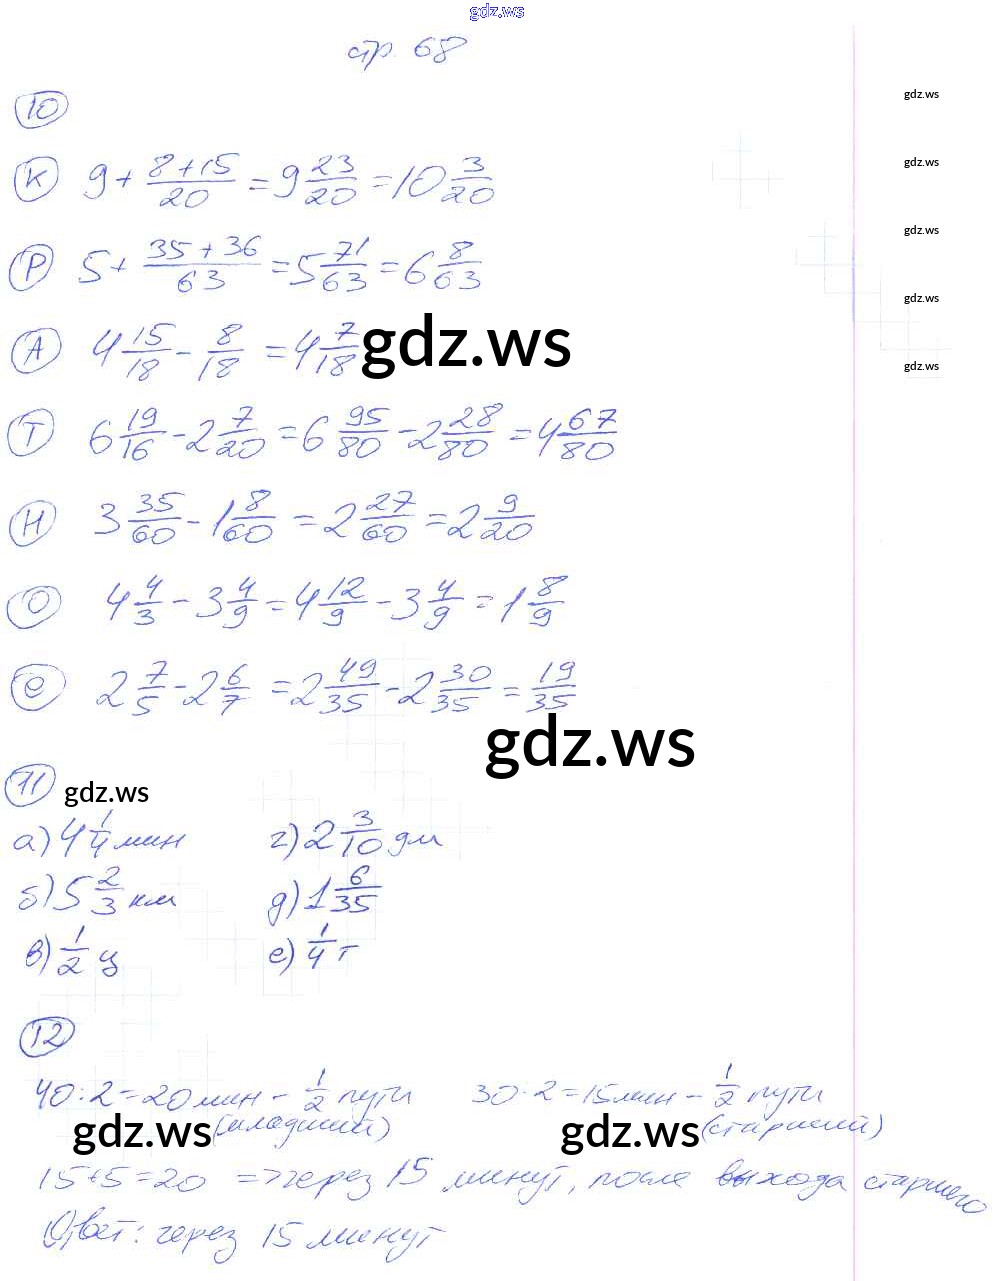 gdz.ws
стр. 68
gdz.ws
10
К 9 + (8+15)/20 = 9 23/20 = 10 3/20
gdz.ws
Р 5 + (35+36)/63 = 5 71/63 = 6 8/63
gdz.ws
gdz.ws
А 4 15/18 - 8/18 = 4 7/18
gdz.ws
gdz.ws
Т 6 19/16 - 2 7/20 = 6 95/80 - 2 28/80 = 4 67/80
Н 3 35/60 - 1 8/60 = 2 27/60 = 2 9/20
О 4 4/3 - 3 4/9 = 4 12/9 - 3 4/9 = 1 8/9
е 2 7/5 - 2 6/7 = 2 49/35 - 2 30/35 = 19/35
gdz.ws
11 gdz.ws
а) 4 1/4 мин г) 2 3/10 дм
б) 5 2/3 км д) 1 6/35
в) 1/2 ц е) 1/4 т
12
40:2=20 мин - 1/2 пути 30:2=15 мин - 1/2 пути
gdz.ws (младший) gdz.ws (старший)
15+5=20 => через 15 минут, после выхода старшего
Ответ: через 15 минут